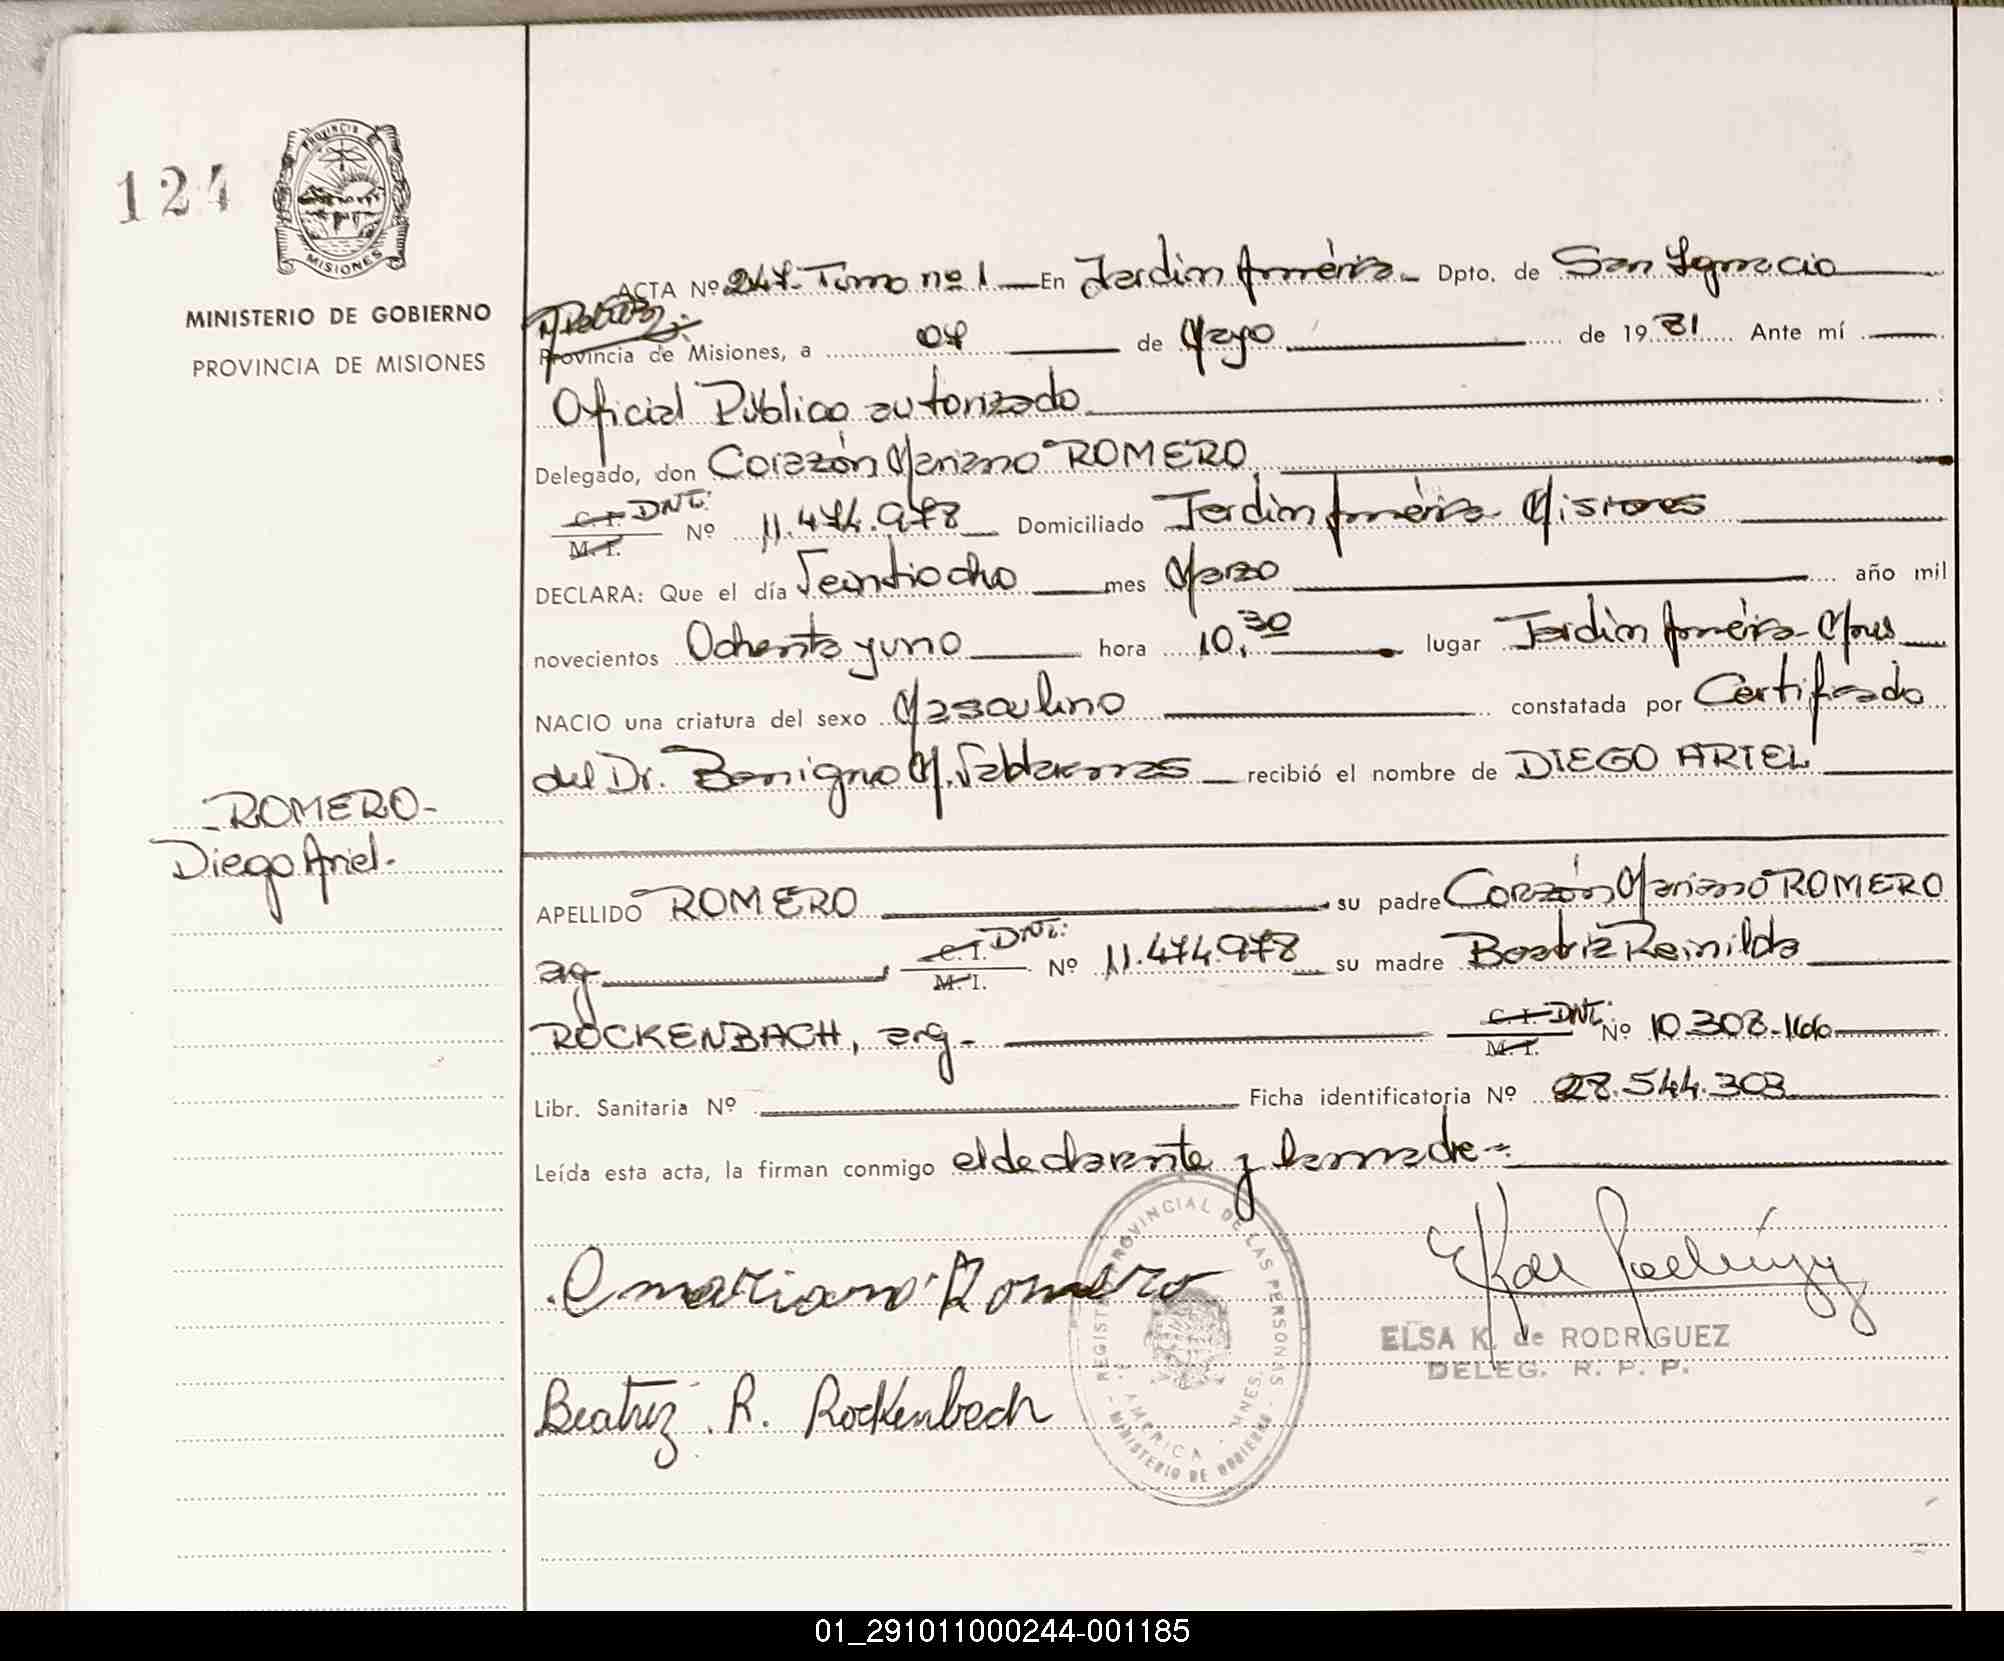 124
PROVINCIA
MISIONES
MINISTERIO DE GOBIERNO
PROVINCIA DE MISIONES
ACTA Nº 247- Tomo nº 1 En Jardin América- Dpto. de San Ignacio
Provincia de Misiones, a 07 de Mayo de 19 81 Ante mí
Oficial Público autorizado
Delegado, don Corazón Mariano ROMERO
C. I. DNI:
M. I. Nº 11.474.978 Domiciliado Jardin América- Misiones
DECLARA: Que el día Veintiocho mes Marzo año mil
novecientos Ochenta y uno hora 10,30 lugar Jardin América- Mnes
NACIO una criatura del sexo Masculino constatada por Certificado
del Dr. Benigno M. recibió el nombre de DIEGO ARIEL
-ROMERO-
Diego Ariel-
APELLIDO ROMERO su padre Corazón Mariano ROMERO
arg C. I. DNI: M. I. Nº 11.474.978 su madre Beatriz Reinilda
ROCKENBACH, arg- C. I. DNI: M. I. Nº 10.308-166
Libr. Sanitaria Nº Ficha identificatoria Nº 28.544.303
Leída esta acta, la firman conmigo el declarante y la madre-
C mariano Romero
REGISTRO PROVINCIAL DE LAS PERSONAS
AMERICA - MNES.
MINISTERIO DE GOBIERNO
ELSA K. de RODRIGUEZ
DELEG. R. P. P.
Beatriz R. Rockenbach
01_291011000244-001185